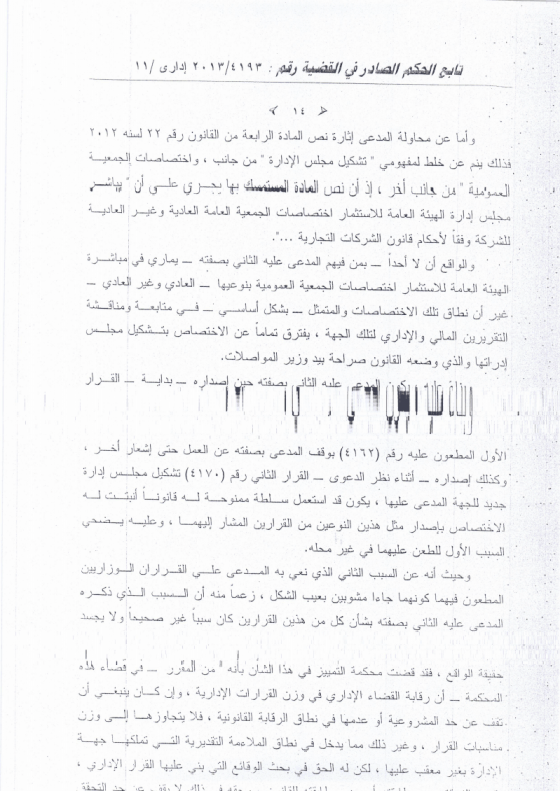 تابع الحكم الصادر في القضية رقم : ٢٠١٣/٤١٩٣ إدارى /١١
﴿ ١٤ ﴾
وأما عن محاولة المدعى إثارة نص المادة الرابعة من القانون رقم ٢٢ لسنه ٢٠١٢
فذلك ينم عن خلط لمفهومي " تشكيل مجلس الإدارة " من جانب ، واختصاصات الجمعية
العمومية " من جانب أخر ، إذ أن نص المادة المستمسك بها يجري علي أن " يباشر
مجلس إدارة الهيئة العامة للاستثمار اختصاصات الجمعية العامة العادية وغير العادية
للشركة وفقاً لأحكام قانون الشركات التجارية ...".
والواقع أن لا أحداً – بمن فيهم المدعى عليه الثاني بصفته – يماري في مباشرة
الهيئة العامة للاستثمار اختصاصات الجمعية العمومية بنوعيها – العادي وغير العادي –
غير أن نطاق تلك الاختصاصات والمتمثل – بشكل أساسي – في متابعة ومناقشة
التقريرين المالي والإداري لتلك الجهة ، يفترق تماماً عن الاختصاص بتشكيل مجلس
إدراتها والذي وضعه القانون صراحة بيد وزير المواصلات.
وبناء عليه يكون المدعى عليه الثاني بصفته حين إصداره – بداية – القرار
الأول المطعون عليه رقم (٤١٦٢) بوقف المدعى بصفته عن العمل حتى إشعار أخر ،
وكذلك إصداره – أثناء نظر الدعوى – القرار الثاني رقم (٤١٧٠) تشكيل مجلس إدارة
جديد للجهة المدعى عليها ، يكون قد استعمل سلطة ممنوحة له قانوناً أنبتت له
الاختصاص بإصدار مثل هذين النوعين من القرارين المشار إليهما ، وعليه يضحي
السبب الأول للطعن عليهما في غير محله.
وحيث أنه عن السبب الثاني الذي نعي به المدعى علي القراران الوزاريين
المطعون فيهما كونهما جاءا مشوبين بعيب الشكل ، زعماً منه أن السبب الذي ذكره
المدعى عليه الثاني بصفته بشأن كل من هذين القرارين كان سبباً غير صحيحاً ولا يجسد
حقيقة الواقع ، فقد قضت محكمة التمييز في هذا الشأن بأنه " من المقرر – في قضاء هذه
المحكمة – أن رقابة القضاء الإداري في وزن القرارات الإدارية ، وإن كان ينبغي أن
تقف عن حد المشروعية أو عدمها في نطاق الرقابة القانونية ، فلا يتجاوزها إلى وزن
مناسبات القرار ، وغير ذلك مما يدخل في نطاق الملاءمة التقديرية التي تملكها جهة
الإدارة بغير معقب عليها ، لكن له الحق في بحث الوقائع التي بني عليها القرار الإداري ،